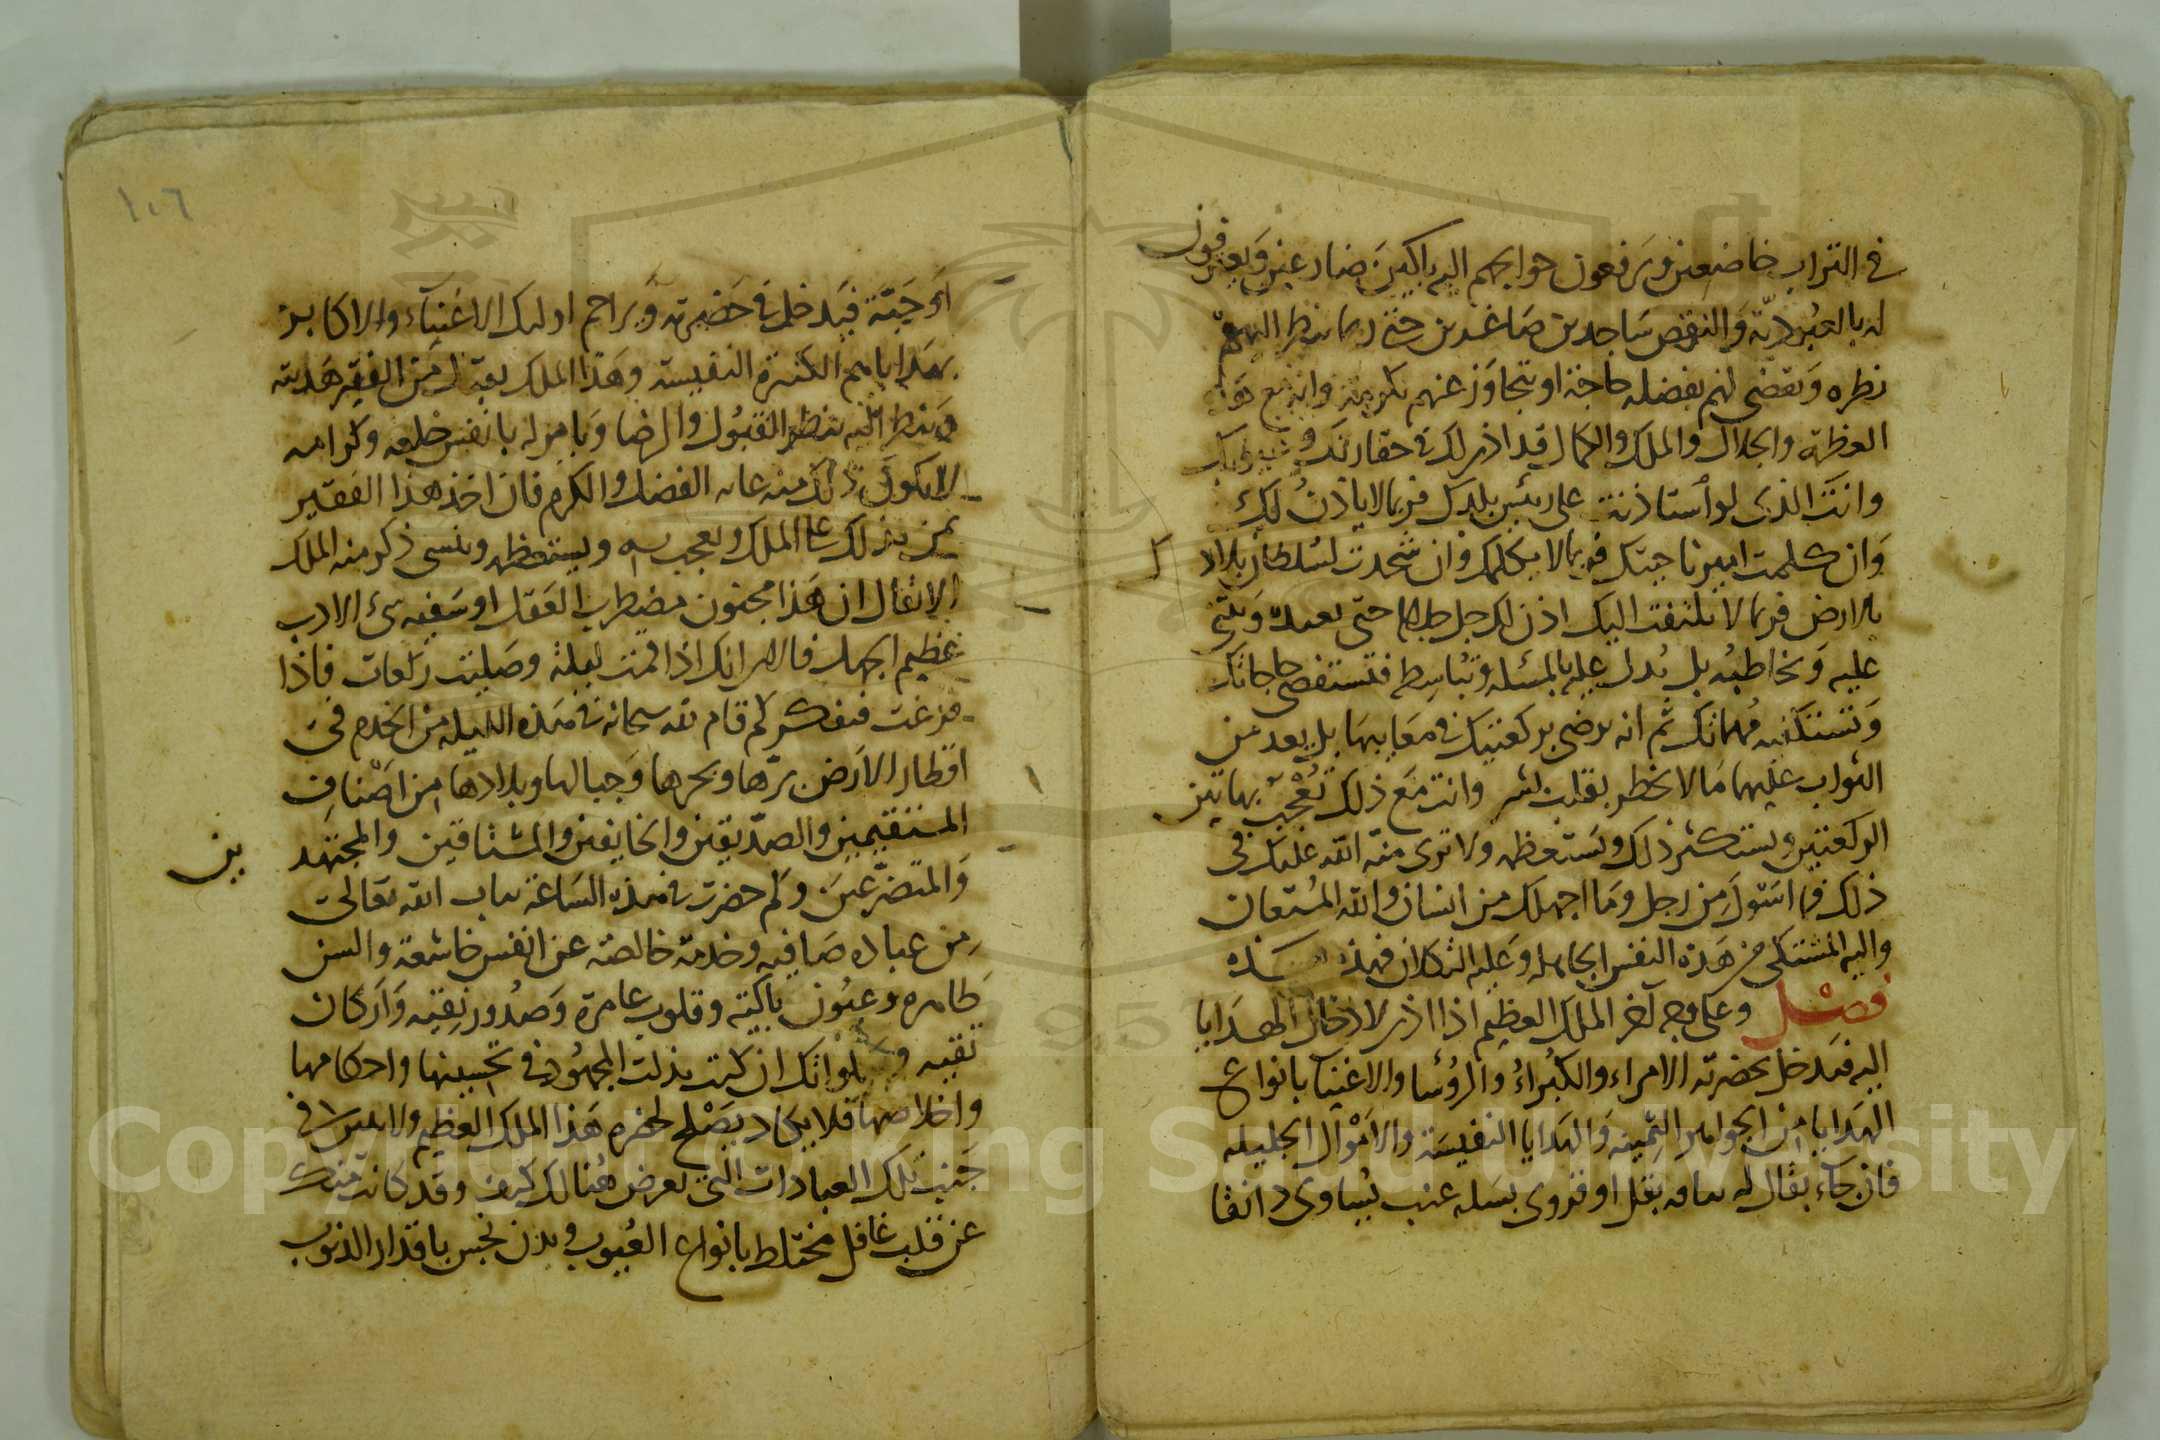 في التراب خاضعين ويرفعون حوايجهم اليه باكين ضارعين ويعترفون
له بالعبودية والنقص ساجدين صاغدين حتى ربما ينظر اليهم
نظره ويقضي لهم بفضله حاجة او يتجاوز عنهم بكرمه وانه مع هذه
العظمة والجلال والملك والكمال قد اذن لك في حقارتك
وانت الذي لو استاذنت على رئيس بلدك فربما لا ياذن لك
وان كلمت امير ناحيتك فربما لا يكلمك وان سجدت لسلطان بلادك
بالارض فربما لا يلتفت اليك اذن لك جل جلاله حتى تعبده وتثني
عليه وتخاطبه بل تدل عليه بالمسئلة وتباسطه فتستقضي حاجاتك
وتستكفيه مهماتك ثم انه يرضى بركعتيك في معايبها بل يعد من
الثواب عليهما ما لا يخطر بقلب بشر وانت مع ذلك تعجب بهاتين
الركعتين وتستكثر ذلك وتستعظمه ولا ترى منة الله عليك في
ذلك فما اسوأك من رجل وما اجهلك من انسان والله المستعان
واليه المشتكى من هذه النفس الجاهلة وعليه التكلان فهذه هذه
فصل وعلى وجه آخر الملك العظيم اذا اذن لادخال الهدايا
اليه فيدخل بحضرته الامراء والكبراء والرؤسا والاغنيآ بانواع
الهدايا من الجواهر الثمينه والهدايا النفيسة والاموال الجليله
فان جاء بقال له بباقه بقل او قروي بسله عنب يساوي دانقا
١٠٦
او حبة فيدخل في حضرته ويزاحم اولئك الاغنيآء والاكابر
بهداياهم الكثيرة النفيسة وهذا الملك يقبل من الفقير هديته
وينظر اليه بنظر القبول والرضا ويامر له بانفس خلعه وكرامه
الا يكون ذلك منه غايه الفضل والكرم فان اخذ هذا الفقير
يمن بذلك على الملك ويعجب به ويستعظمه وينسى ذكر منه الملك
الا يقال ان هذا مجنون مضطرب العقل او سفيه سيء الادب
عظيم الجهل فالان انك اذا قمت ليلة وصليت ركعات فاذا
فرغت فتفكر كم قام لله سبحانه في هذه الليله من الخدم في
اقطار الارض برها وبحرها وجبالها وبلادها من اصناف
المستقيمين والصديقين والخايفين والمشتاقين والمجتهدين
والمتضرعين وكم حضرت في هذه الساعة بباب الله تعالى
من عباده صافيه وخدمة خالصه عن انفس خاشعة والسن
طاهره وعيون باكية وقلوب عامرة وصدور نقيه واركان
تقيه وصلواتك ان كنت بذلت المجهود في تحسينها واحكامها
واخلاصها فلا يكاد يصلح لحضره هذا الملك العظيم ولا يتبين في
جنب تلك العبادات التي تعرض هنالك كيف وقد كانت منك
عن قلب غافل مختلط بانواع العيوب وبدن نجس باقذار الذنوب